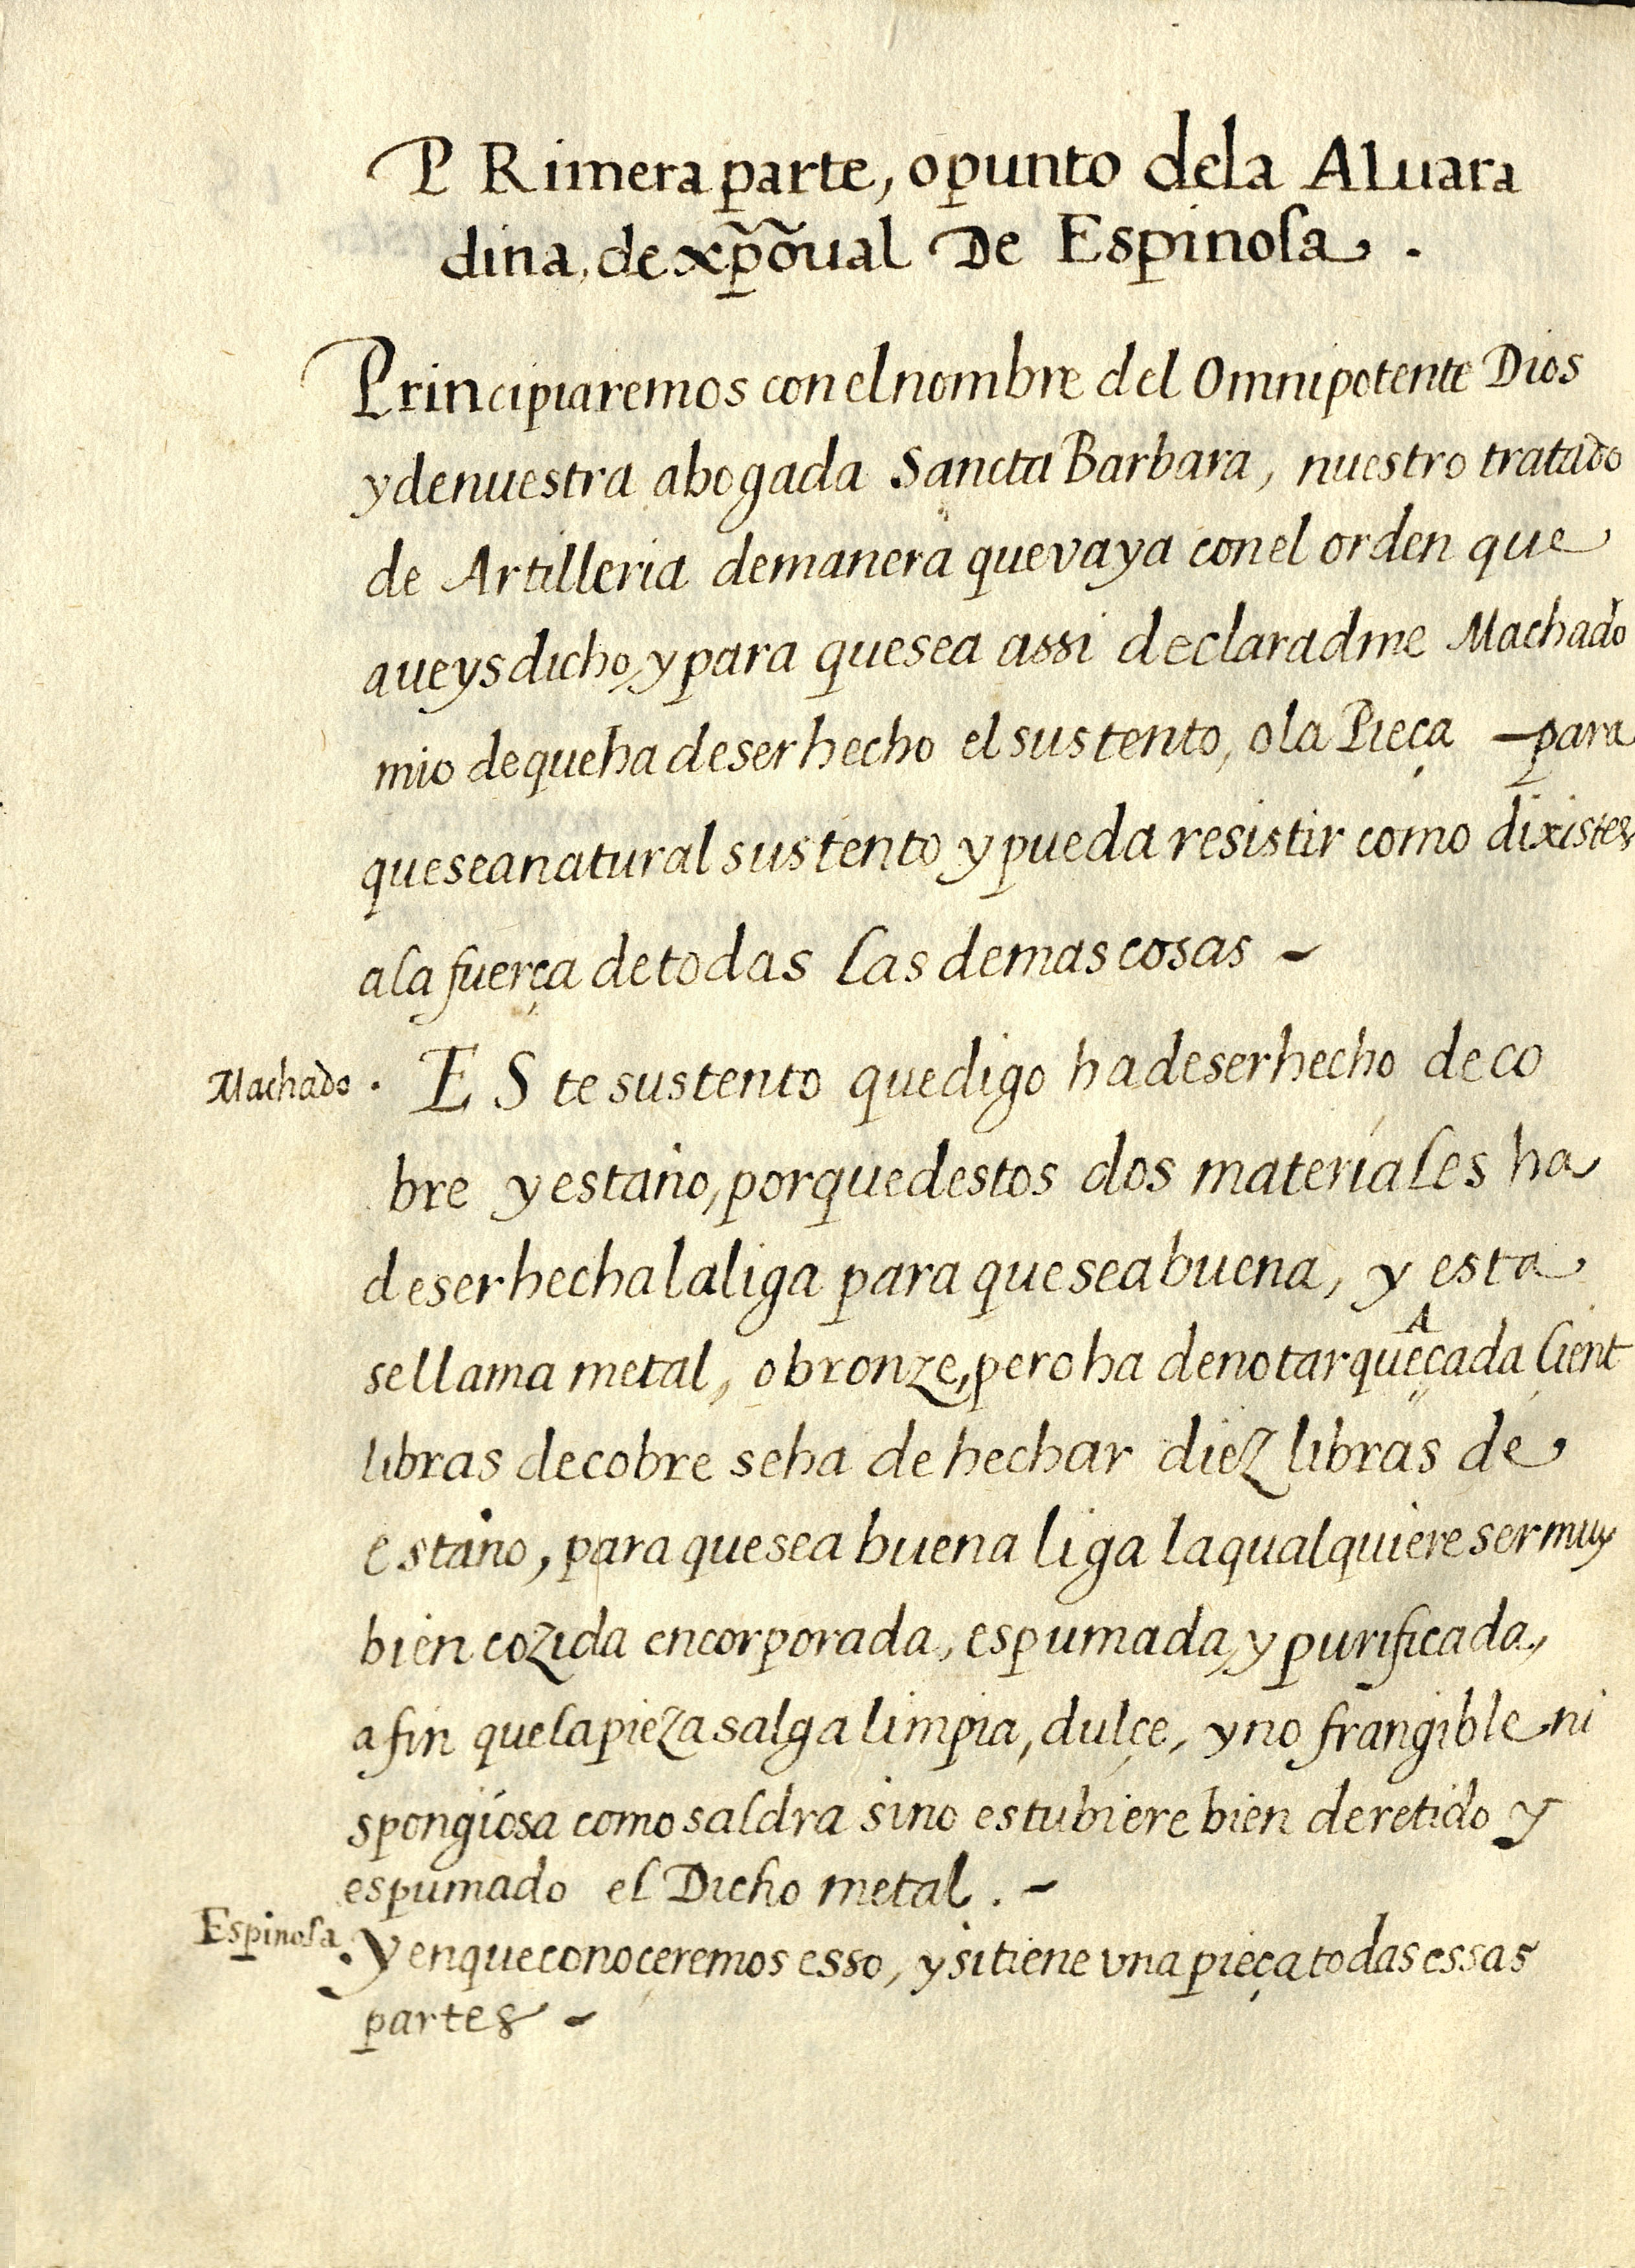 P Rimera parte, o punto dela Aluara
dina, de xp̃õual De Espinosa.
Principiaremos con el nombre del Omnipotente Dios
y de nuestra abogada Sancta Barbara, nuestro tratado
de Artilleria de manera que vaya con el orden que
aueys dicho, y para que sea assi declaradme Machado
mio de que ha de ser hecho el sustento, o la Pieça — para
que sea natural sustento y pueda resistir como dixistes
a la fuerça de todas las demas cosas –
Machado. ES te sustento que digo ha de ser hecho de co
bre y estaño, porque destos dos materiales ha
de ser hecha la liga para que sea buena, y esta
A
se llama metal, o bronze, pero ha de notar que çada Cient
libras de cobre se ha de hechar diez libras de
estaño, para que sea buena liga la qual quiere ser muy
bien cozida encorporada, espumada, y purificada,
a fin que la pieza salga limpia, dulçe, y no frangible, ni
spongiosa como saldra sino estubiere bien deretido y
espumado el Dicho metal. –
Espinosa. Y en que conoçeremos esso, y si tiene vna pieça todas essas
partes –